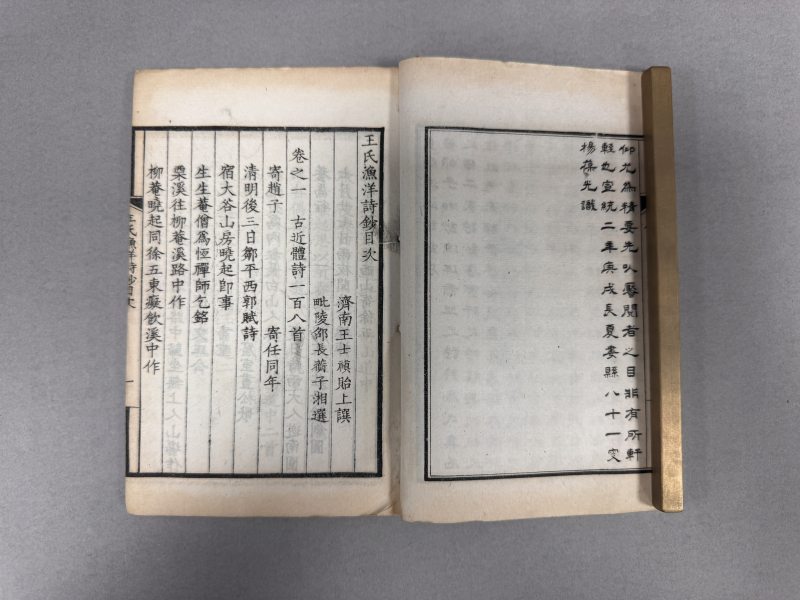 仰尤為精要先以饜閱者之目非有所軒
輊也宣統二年庚戌長夏婁縣八十一叟
楊葆光識
王氏漁洋詩鈔目次
濟南王士禎貽上譔
毗陵邵長蘅子湘選
卷之一 古近體詩一百八首
寄趙子 寄任同年
清明後三日鄒平西郭賦詩
宿大谷山房曉起即事
生生菴僧為恆禪師乞銘
栗溪往柳菴溪路中作
柳菴曉起同徐五東癡飲溪中作
王氏漁洋詩鈔目次 一